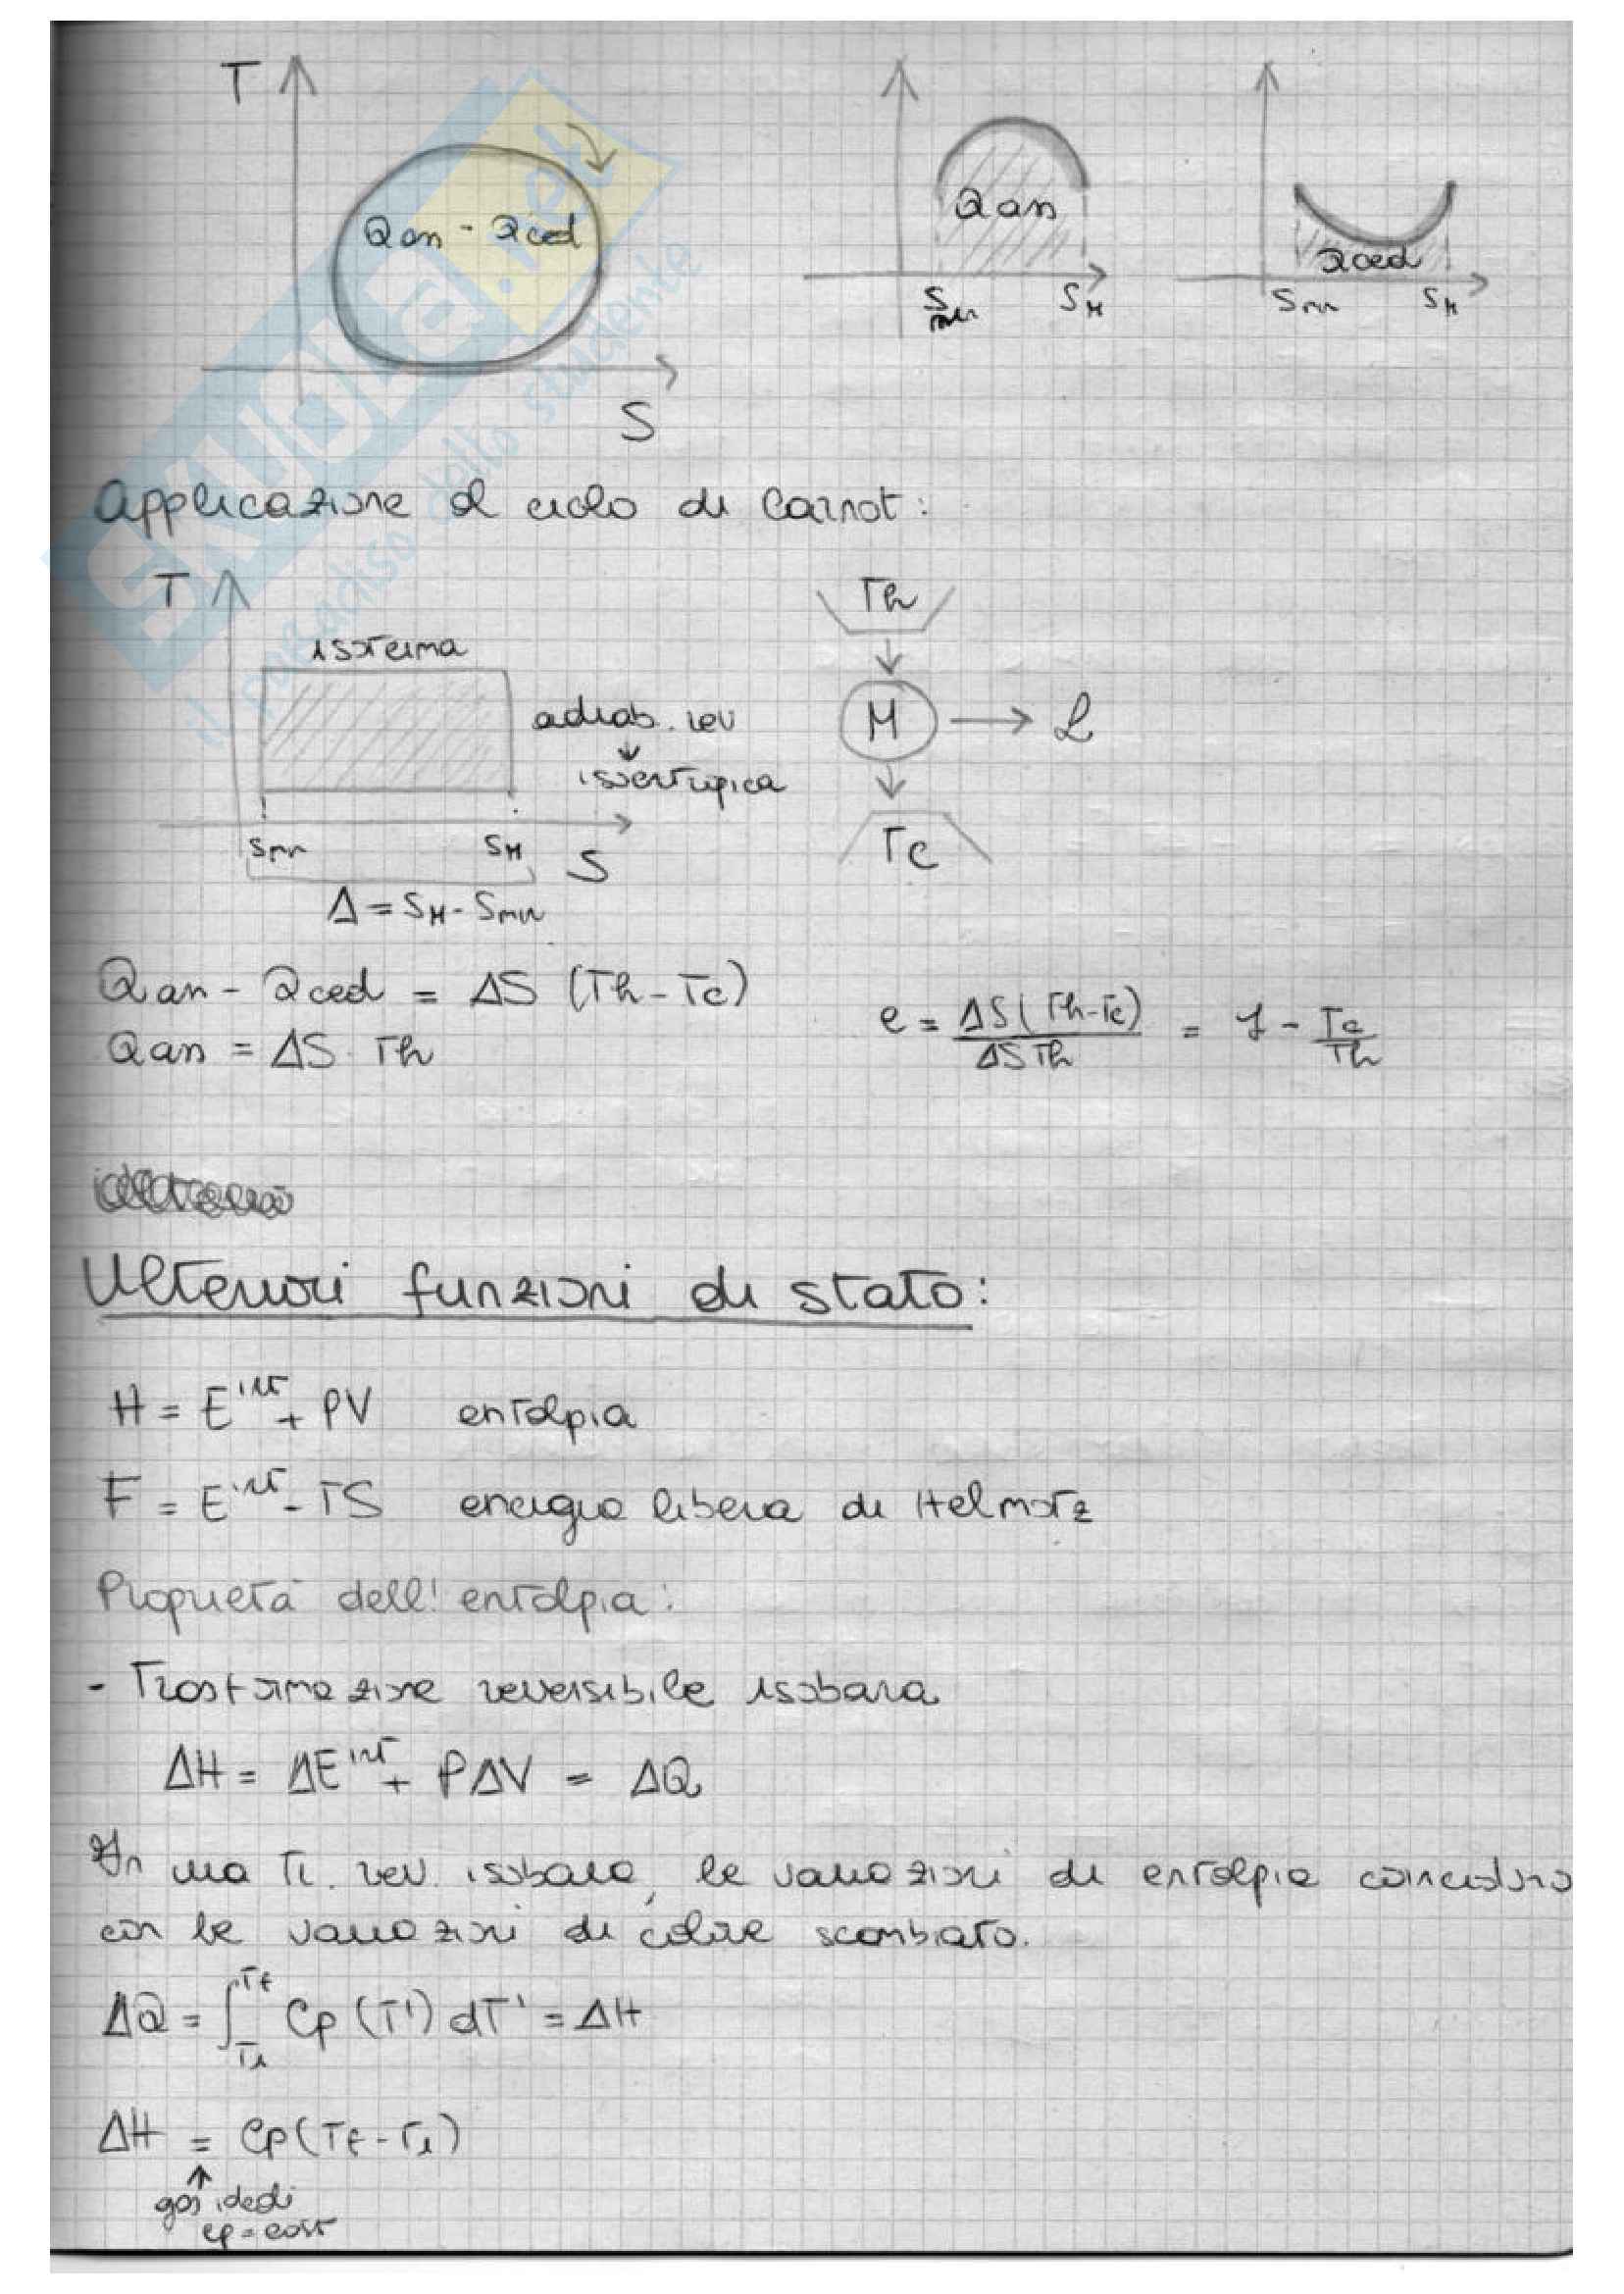 T
Qan - Qced
S
Qan
Smin
SM
Qced
Smin
SM
SKUOLA.net
il paradiso dello studente
Applicazione al ciclo di Carnot:
T
isoterma
adiab. rev
↓
isoentropica
Smin
SM
S
Δ = SM - Smin
Th
M → L
Tc
Qan - Qced = ΔS (Th - Tc)
Qan = ΔS Th
e = ΔS (Th-Tc) / ΔS Th = 1 - Tc/Th
Ulteriori funzioni di stato:
H = E^int + PV entalpia
F = E^int - TS energia libera di Helmotz
Proprietà dell'entalpia:
- Trasformazione reversibile isobara
ΔH = ΔE^int + PΔV = ΔQ
In una tr. rev. isobara, le variazioni di entalpia coincidono
con le variazioni di calore scambiato.
ΔQ = ∫_Ti^Tf Cp (T') dT' = ΔH
ΔH = Cp(Tf - Ti)
↑
gas ideali
cp = cost